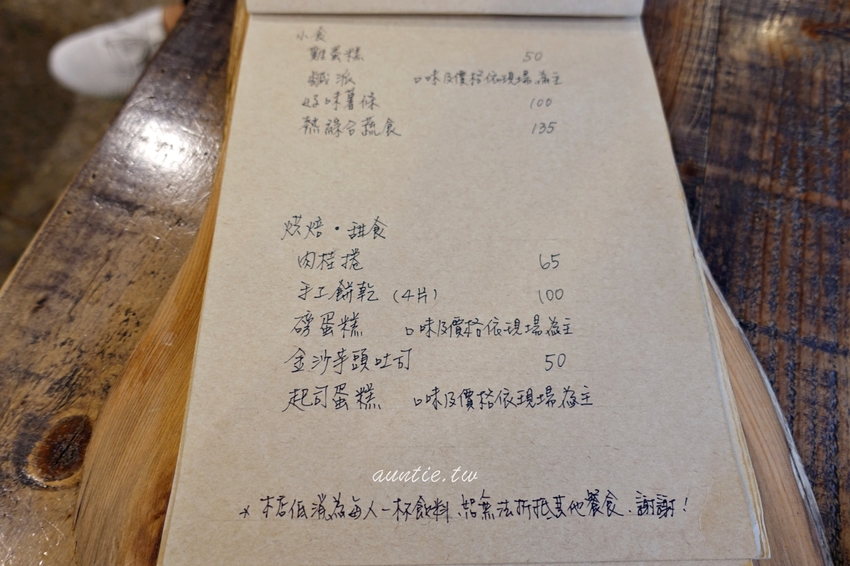 小食
雞蛋糕 50
鹹派 口味及價格依現場為主
好味薯條 100
蔬食 135
烘焙・甜食
肉桂捲 65
手工餅乾 (4片) 100
磅蛋糕 口味及價格依現場為主
金沙芋頭吐司 50
起司蛋糕 口味及價格依現場為主
auntie.tw
* 本店低消為每人一杯飲料、恕無法折抵其他餐食、謝謝!